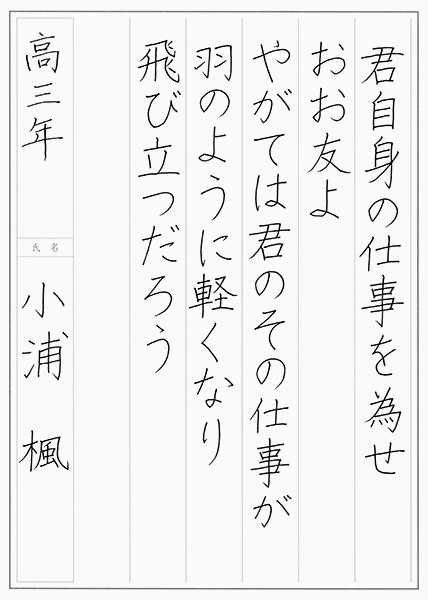 君自身の仕事を為せ
おお友よ
やがては君のその仕事が
羽のように軽くなり
飛び立つだろう
高三年
氏名
小浦 楓